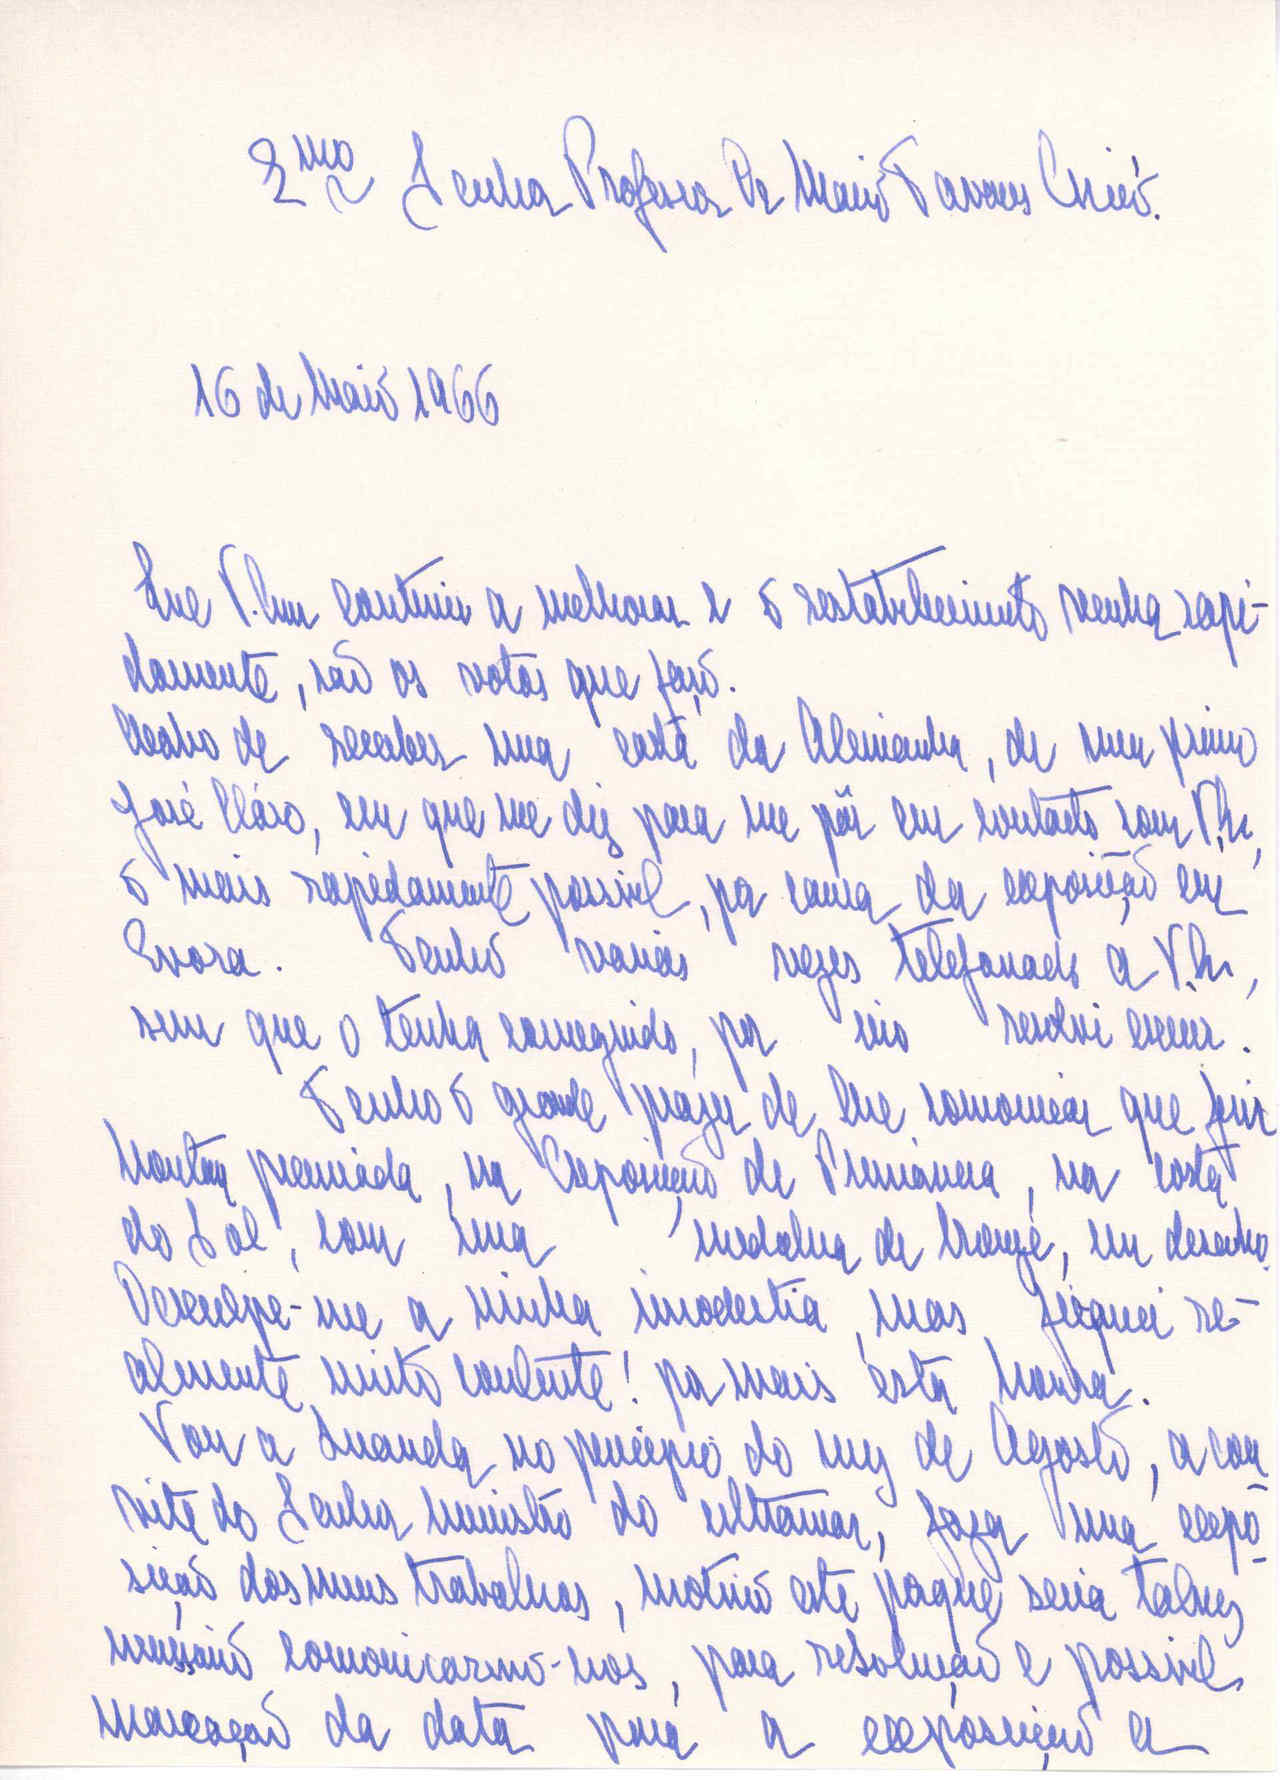 Exmo Senhor Professor Dr Mário Tavares Chicó.
16 de Maio 1966
Que V. Exa continui a melhorar e o restabelecimento venha rapi-
damente, são os votos que faço.
Acabo de receber uma carta da Alemanha, de meu primo
José Cláro, em que me diz para me pôr em contacto com V. Exa,
o mais rápidamente possivel, por causa da exposição em
Evora. Tenho varias vezes telefonado a V. Exa,
sem que o tenha conseguido, por isso resolvi escrever.
Tenho o grande prazer de lhe comunicar que fui
premiada, na Exposição de Primavera, na Costa
do Sol, com uma medalha de bronze, em desenho.
Desculpe-me a minha imodestia, mas fiquei re-
almente muito contente! por mais esta honra.
Vou a Luanda no principio do mez de Agosto, a con
vite do Senhor Ministro do Ultramar, fazer uma expo
sição dos meus trabalhos, motivo este porque seria talvez
necessário comonicarmo-nos, para resolução e possivel
marcação da data para a exposição a